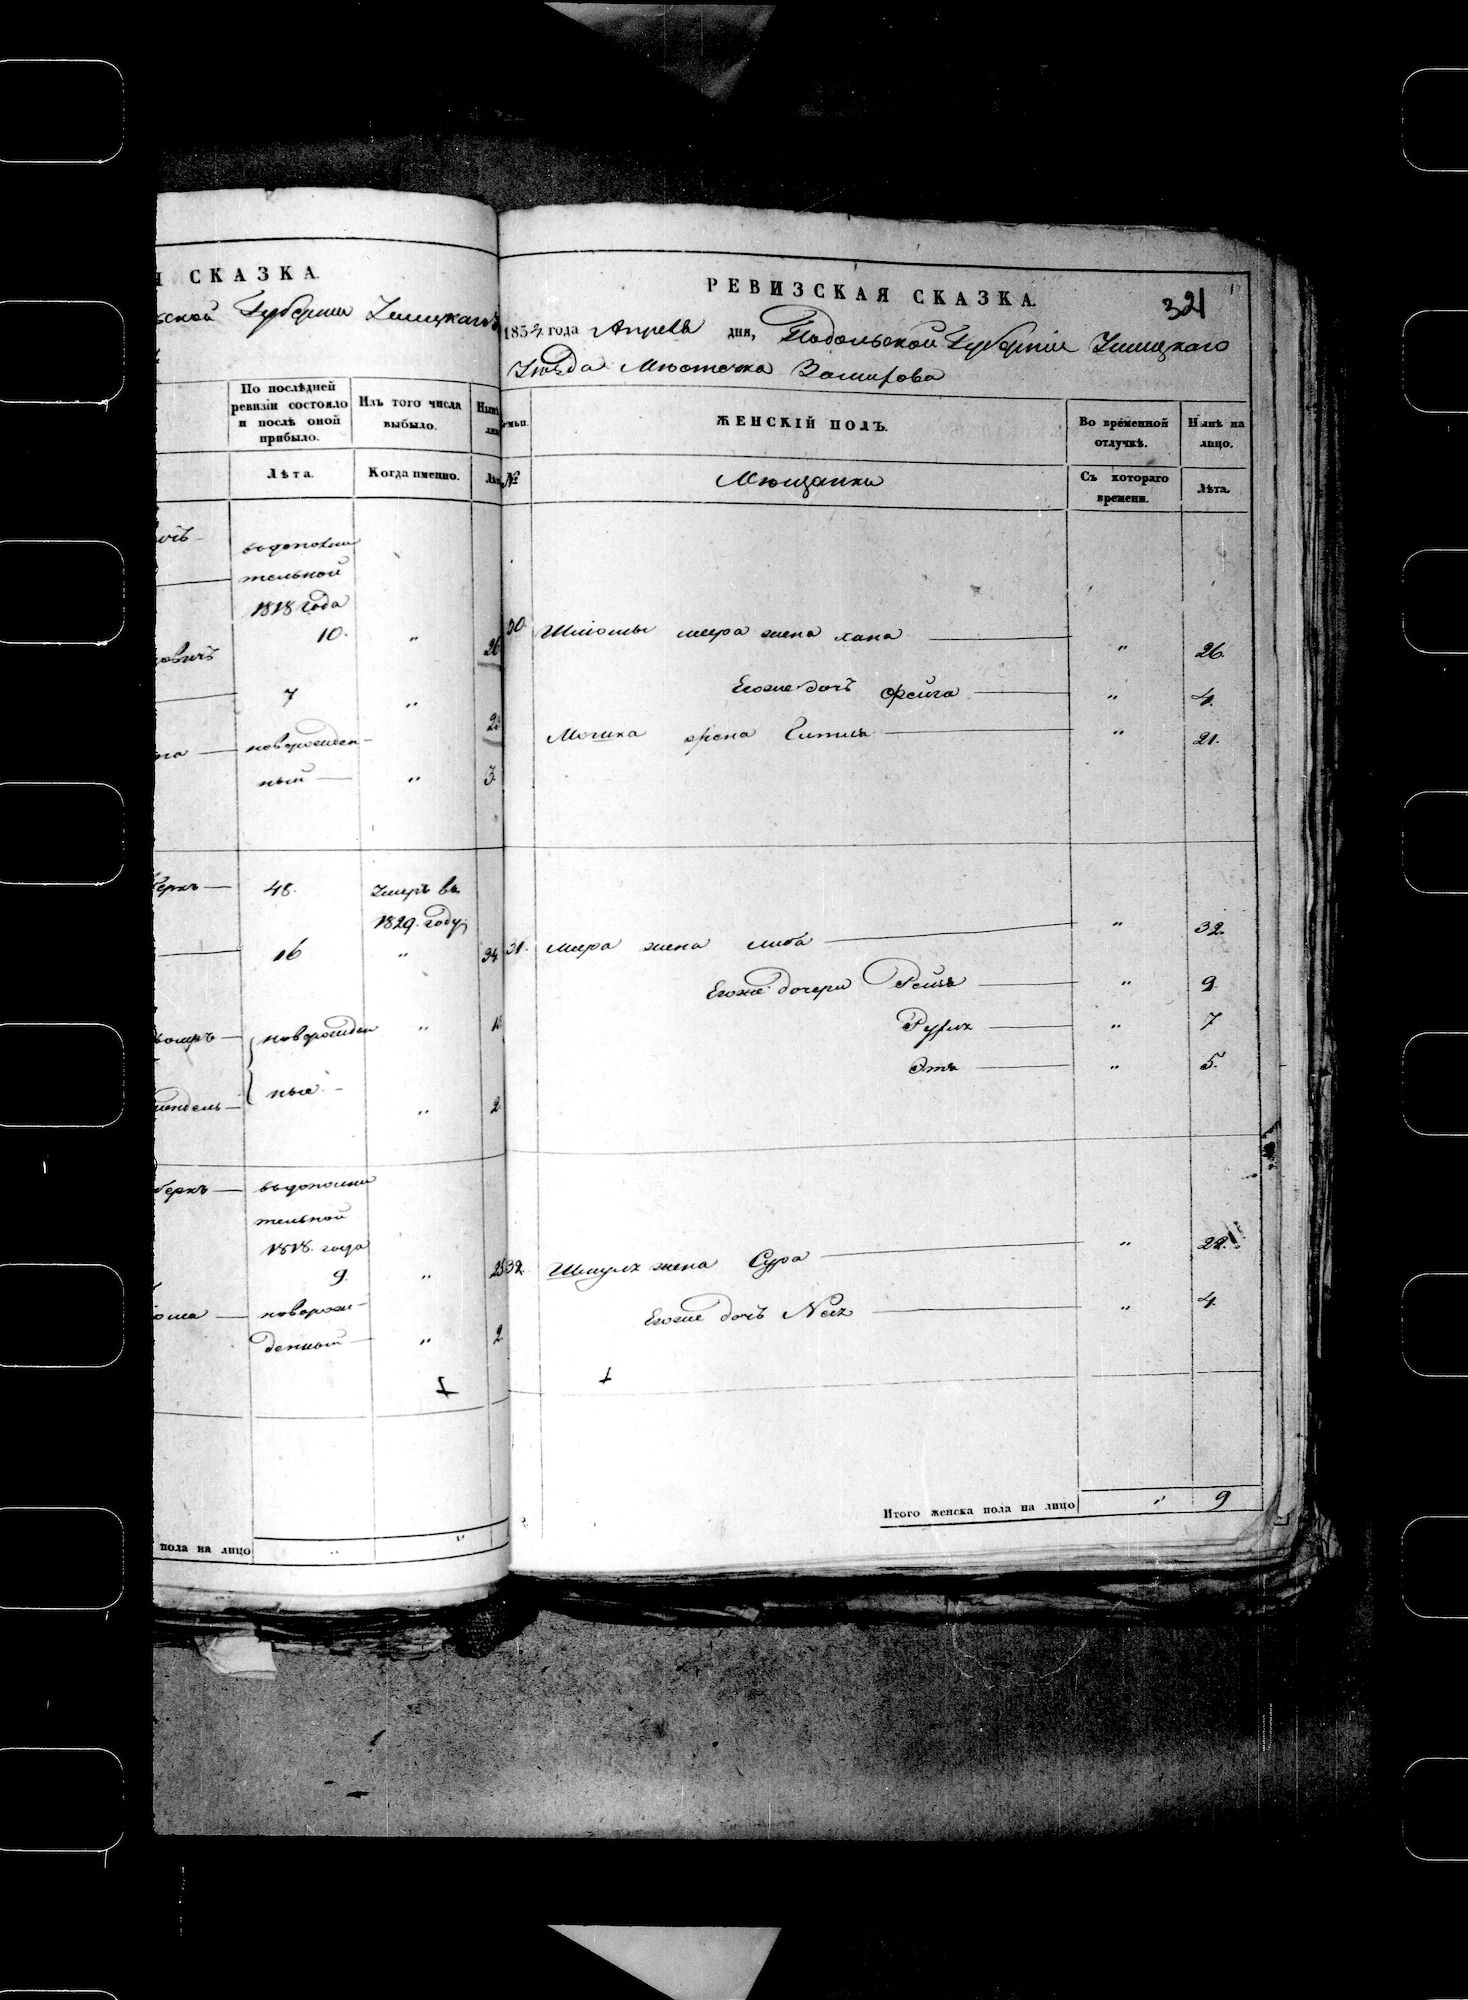 СКАЗКА.
ской Губерніи Ушицкаго
По послѣдней ревизіи состояло и послѣ оной прибыло.
Изъ того числа выбыло.
Лѣта.
Когда именно.
вдополни
тельной
1818 года
10. " 26
овичъ
7 "
новорожден-
ный — " 3
беркъ — 48. умеръ въ
1829. году
16 " 34
новорожден
ные. —
мендель — " 2
беркъ — вдополни
тельной
1818. года
9. "
новорож-
денный — " 2
пола на лицо " "
РЕВИЗСКАЯ СКАЗКА.
321
1834 года Апреля дня, Подольской Губерніи Ушицкаго
Уѣзда Мѣстечка Замихова
№
ЖЕНСКІЙ ПОЛЪ.
Во временной отлучкѣ.
Нынѣ на лицо.
Мѣщанки
Съ котораго времени.
Лѣта.
30. Шліомы меера жена хана — " 26.
Егоже дочь Фейга — " 4.
Мошка жена — " 21.
31. меера жена либа — " 32.
Егоже дочери Рейзя — " 9
Рухля — " 7
Этя — " 5.
32. Шмуля жена Сура — " 22.
Егоже дочь — " 4.
Итого женска пола на лицо " 9